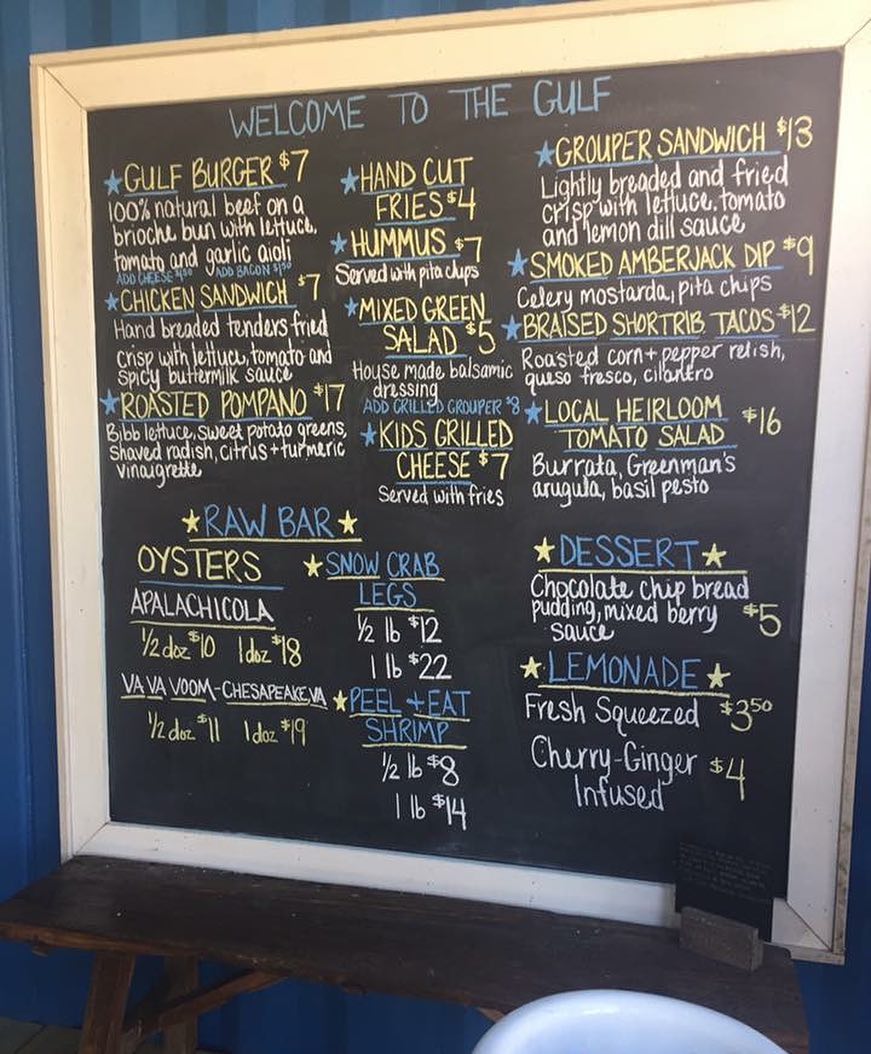 WELCOME TO THE GULF
GULF BURGER $7
100% natural beef on a
brioche bun with lettuce,
tomato and garlic aioli
ADD CHEESE $1.50 ADD BACON $1.50
CHICKEN SANDWICH $7
Hand breaded tenders fried
crisp with lettuce, tomato and
spicy buttermilk sauce
ROASTED POMPANO $17
Bibb lettuce, sweet potato greens,
Shaved radish, citrus + turmeric
vinaigrette
HAND CUT
FRIES $4
HUMMUS $7
Served with pita chips
MIXED GREEN
SALAD $5
House made balsamic
dressing
ADD GRILLED GROUPER $8
KIDS GRILLED
CHEESE $7
Served with fries
GROUPER SANDWICH $13
Lightly breaded and fried
crisp with lettuce, tomato
and lemon dill sauce
SMOKED AMBERJACK DIP $9
Celery mostarda, pita chips
BRAISED SHORTRIB TACOS $12
Roasted corn + pepper relish,
queso fresco, cilantro
LOCAL HEIRLOOM
TOMATO SALAD $16
Burrata, Greenman's
arugula, basil pesto
RAW BAR
OYSTERS
APALACHICOLA
1/2 doz $10 1 doz $18
VA VA VOOM-CHESAPEAKE, VA
1/2 doz $11 1 doz $19
SNOW CRAB
LEGS
1/2 lb $12
1 lb $22
PEEL + EAT
SHRIMP
1/2 lb $8
1 lb $14
DESSERT
Chocolate chip bread
pudding, mixed berry
sauce $5
LEMONADE
Fresh Squeezed $3.50
Cherry-Ginger $4
Infused